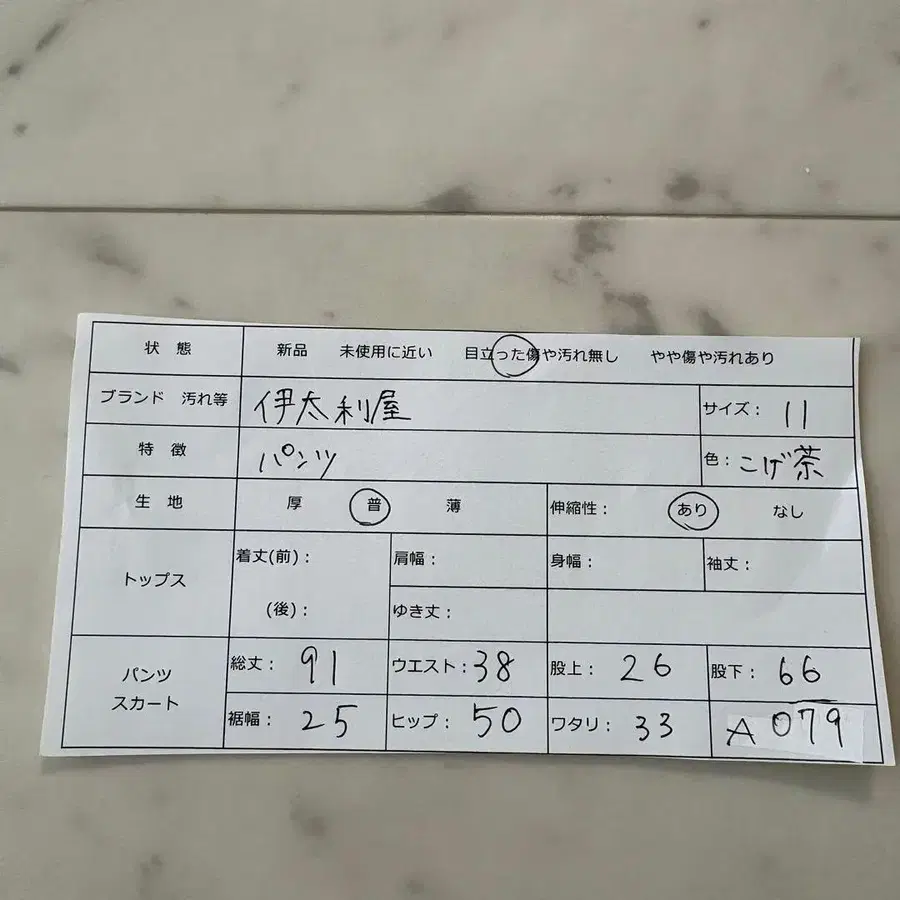 状態 新品 未使用に近い 目立った傷や汚れ無し やや傷や汚れあり
ブランド 汚れ等 伊太利屋 サイズ： 11
特徴 パンツ 色：こげ茶
生地 厚 普 薄 伸縮性： あり なし
トップス 着丈(前)： 肩幅： 身幅： 袖丈：
(後)： ゆき丈：
パンツ スカート 総丈： 91 ウエスト：38 股上： 26 股下： 66
裾幅： 25 ヒップ： 50 ワタリ： 33 A079